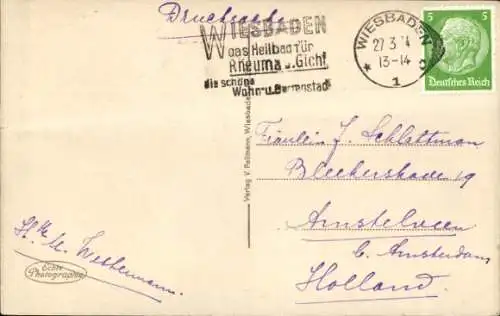 Drucksache
WIESBADEN
das Heilbad für
Rheuma u. Gicht
die schöne
Wohn- u. Gartenstadt
WIESBADEN
27.3. 4
13-14
* 1 c
5 5
Deutsches Reich
Verlag V. Pellmann, Wiesbaden
Fräulein J. Schlettman
19
Amstelveen
b. Amsterdam
Holland.
Westermann.
Echte
Photographie